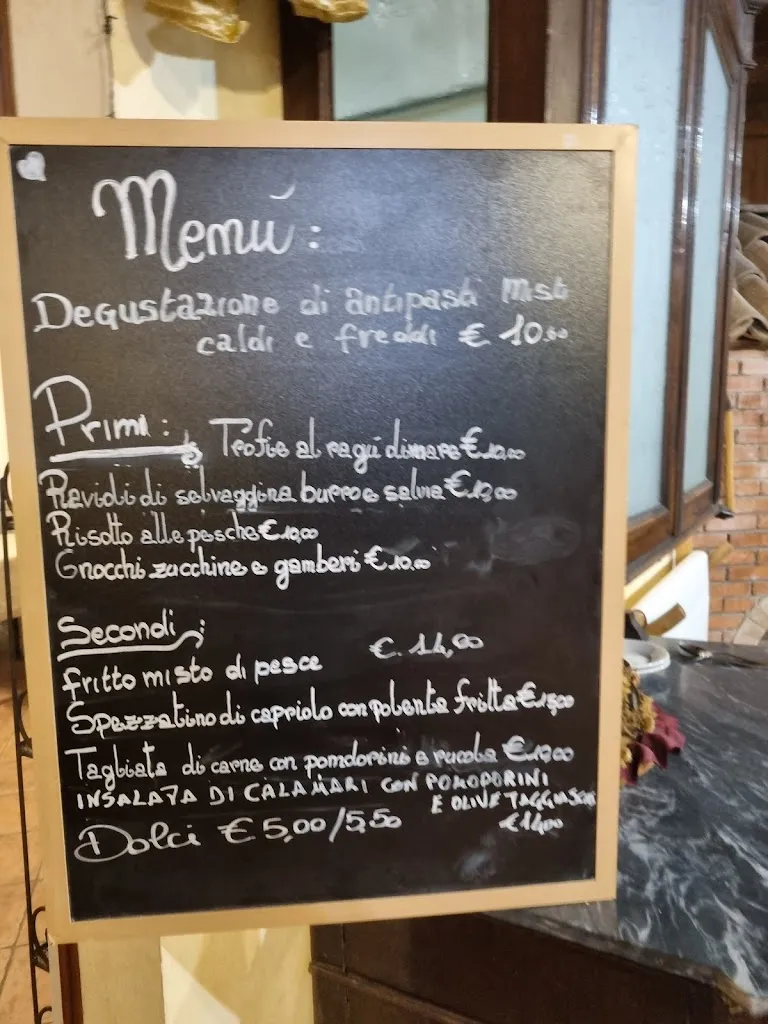 Menú:
Degustazione di antipasti Misti
caldi e freddi € 10.00
Primi: Trofie al ragú di mare € 10.00
Ravioli di selvaggina burro e salvia € 10,00
Risotto alle pesche € 10,00
Gnocchi zucchine e gamberi € 10.00
Secondi:
fritto misto di pesce €. 14,00
Spezzatino di capriolo con polenta fritta €
Tagliata di carne con pomdorini e rucola €
INSALATA DI CALAMARI CON POMODORINI
E OLIVE TAGGIASCHE
€ 14,00
Dolci € 5,00/5,50